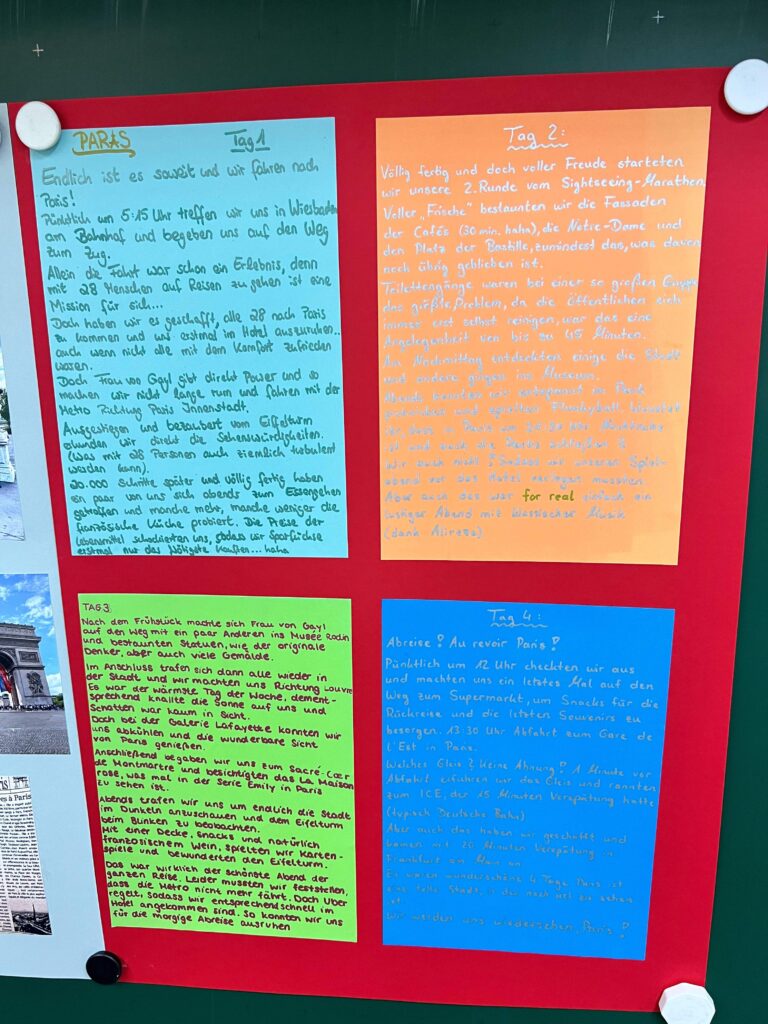 PARIS
Tag 1
Endlich ist es soweit und wir fahren nach
Paris!
Pünktlich um 5:15 Uhr treffen wir uns in Wiesbaden
am Bahnhof und begeben uns auf den Weg
zum Zug.
Allein die Fahrt war schon ein Erlebnis, denn
mit 28 Menschen auf Reisen zu gehen ist eine
Mission für sich...
Doch haben wir es geschafft, alle 28 nach Paris
zu kommen und uns erstmal im Hotel auszuruhen...
auch wenn nicht alle mit dem Komfort zufrieden
waren.
Doch Frau von Gayl gibt direkt Power und so
machen wir nicht lange rum und fahren mit der
Metro Richtung Paris Innenstadt.
Ausgestiegen und bezaubert vom Eiffelturm
erkunden wir direkt die Sehenswürdigkeiten.
(Was mit 28 Personen auch ziemlich turbulent
werden kann).
20.000 Schritte später und völlig fertig haben
ein paar von uns sich abends zum Essengehen
getroffen und manche mehr, manche weniger die
französische Küche probiert. Die Preise der
Lebensmittel schockierten uns, sodass wir Sparfüchse
erstmal nur das Nötigste kauften... haha
Tag 2:
Völlig fertig und doch voller Freude starteten
wir unsere 2. Runde vom Sightseeing-Marathon.
Voller „Frische" bestaunten wir die Fassaden
der Cafés (30 min. haha), die Notre-Dame und
den Platz der Bastille, zumindest das, was davon
noch übrig geblieben ist.
Toilettengänge waren bei einer so großen Gruppe
das größte Problem, da die öffentlichen sich
immer erst selbst reinigen, war das eine
Angelegenheit von bis zu 45 Minuten.
Am Nachmittag entdeckten einige die Stadt
und andere gingen ins Museum.
Abends konnten wir entspannt im Park
picknicken und spielten Flunkyball.
ist und auch die Parks schließen?
Wir auch nicht! Sodass wir unseren Spiel-
abend vor das Hotel verlegen mussten.
Aber auch das war for real einfach ein
lustiger Abend mit klassischer Musik
(dank Alireza)
TAG 3:
Nach dem Frühstück machte sich Frau von Gayl
auf den Weg mit ein paar Anderen ins Musée Rodin
und bestaunten Statuen, wie der originale
Denker, aber auch viele Gemälde.
Im Anschluss trafen sich dann alle wieder in
der Stadt und wir machten uns Richtung Louvre.
Es war der wärmste Tag der Woche, dement-
sprechend knallte die Sonne auf uns und
Schatten war kaum in Sicht.
Doch bei der Galerie Lafayette konnten wir
uns abkühlen und die wunderbare Sicht
von Paris genießen.
Anschließend begaben wir uns zum Sacré-Cœr
de Montmartre und besichtigten das La Maison
rose, was mal in der Serie Emily in Paris
zu sehen ist.
Abends trafen wir uns um endlich die Stadt
im Dunkeln anzuschauen und dem Eifelturm
beim Blinken zu beobachten.
Mit einer Decke, Snacks und natürlich
französischem Wein, spielten wir Karten-
spiele und bewunderten den Eiffelturm.
Das war wirklich der schönste Abend der
ganzen Reise. Leider mussten wir feststellen,
dass die Metro nicht mehr fährt. Doch Uber
regelt, sodass wir entsprechend schnell im
Hotel angekommen sind. So konnten wir uns
für die morgige Abreise ausruhen
Tag 4:
Abreise! Au revoir Paris!
Pünktlich um 12 Uhr checkten wir aus
und machten uns ein letztes Mal auf den
Weg zum Supermarkt, um Snacks für die
Rückreise und die letzten Souvenirs zu
besorgen. 13:30 Uhr Abfahrt zum Gare de
l'Est in Paris.
Welches Gleis? Keine Ahnung! 1 Minute vor
Abfahrt erfuhren wir das Gleis und rannten
zum ICE, der 15 Minuten Verspätung hatte
(typisch Deutsche Bahn)
Aber auch das haben wir geschafft und
kamen mit 20 Minuten Verspätung in
Frankfurt am Main an.
Es waren wunderschöne 4 Tage. Paris ist
eine tolle Stadt, in der noch viel zu sehen
ist.
Wir werden uns wiedersehen, Paris!
es à Paris